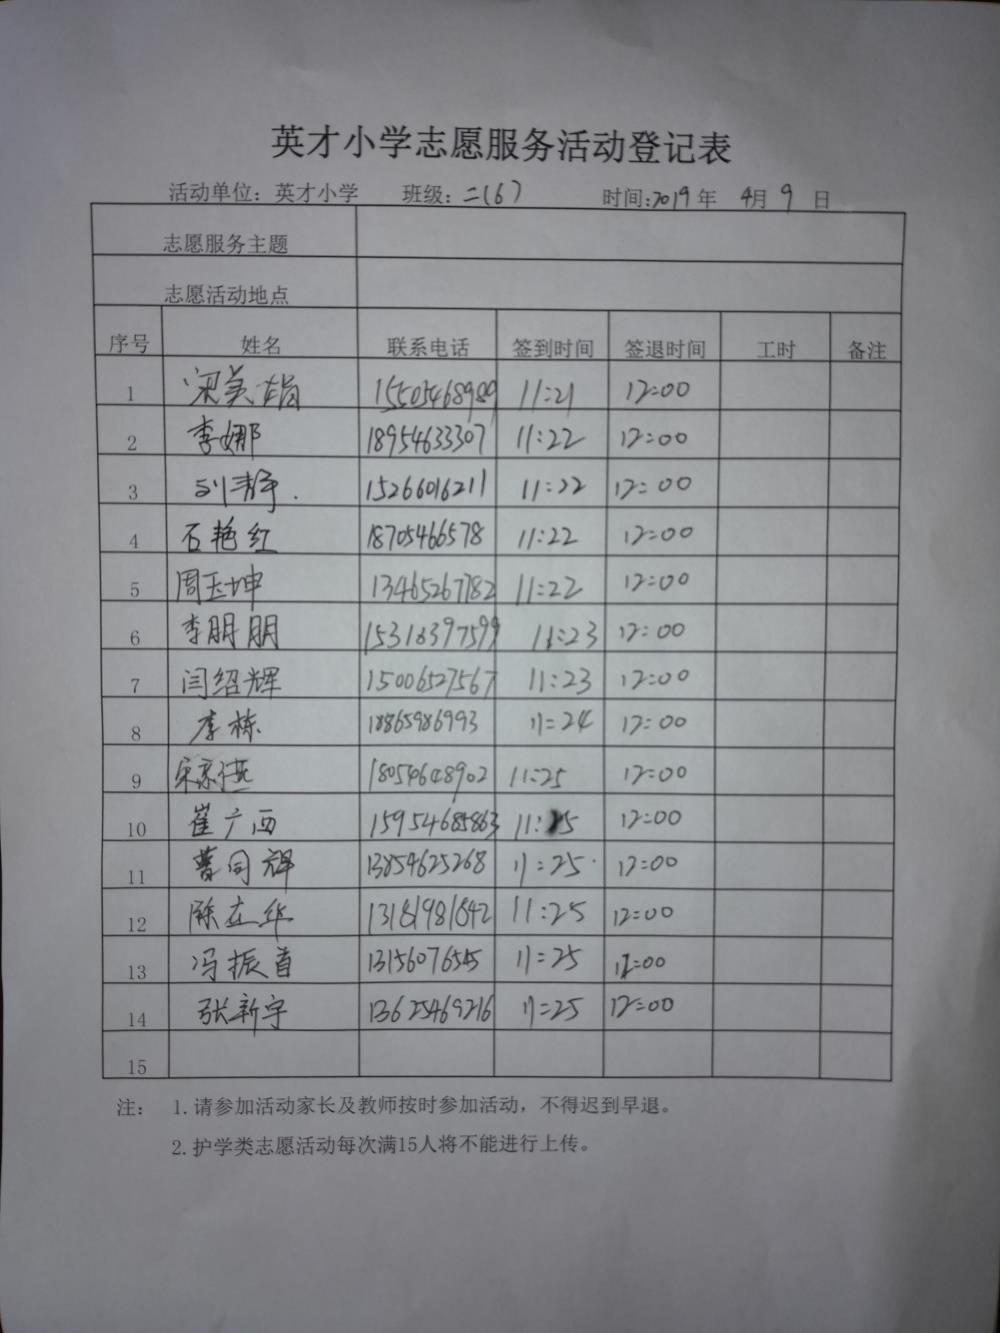 英才小学志愿服务活动登记表
活动单位：英才小学 班级：二(6) 时间:2019年 4月 9 日
志愿服务主题
志愿活动地点
序号 姓名 联系电话 签到时间 签退时间 工时 备注
1 宋美娟 15505468989 11:21 12:00
2 李娜 18954633307 11:22 12:00
3 刘静. 15266016211 11:22 12:00
4 石艳红 18705466578 11:22 12:00
5 周玉坤 13465267782 11:22 12:00
6 李朋朋 15318397599 11:23 12:00
7 闫绍辉 15006527567 11:23 12:00
8 李栋 18865986993 11:24 12:00
9 18054648902 11:25 12:00
10 崔广西 15954685863 11:25 12:00
11 曹同辉 13854625268 11:25 12:00
12 陈在华 13181981642 11:25 12:00
13 冯振首 13156076545 11:25 12:00
14 张新宇 13625469216 11:25 12:00
15
注： 1.请参加活动家长及教师按时参加活动，不得迟到早退。
2.护学类志愿活动每次满15人将不能进行上传。